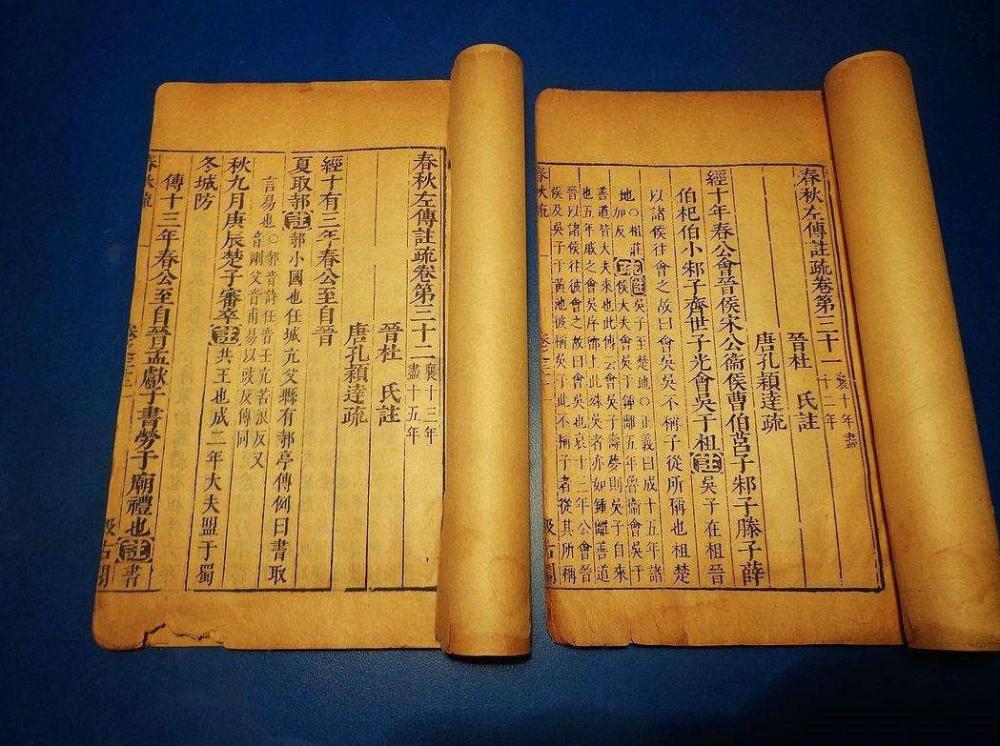 春秋左傳註疏卷第三十一
襄十年盡
十二年
晉杜 氏註
唐孔穎達疏
經十年春公會晉侯宋公衞侯曹伯莒子邾子滕子薛
伯杞伯小邾子齊世子光會吳于柤註吳子在柤晉
以諸侯往會之故曰會吳吳不稱子從所稱也柤楚
地○柤莊
加反
註吳子至楚地○正義曰成十五年諸
侯大夫會吳于鍾離五年魯衞會吳于
善道皆大夫來也此傳云會吳子壽夢則吳子自來
也五年戚之會吳序鄫上此殊吳者亦如鍾離善道
晉以諸侯往彼會之故曰會吳也哀十三年公會晉
侯及吳子于黃池彼稱吳子此不稱子者從其所稱
春秋疏
汲古閣
春秋左傳註疏卷第三十二
襄十三年
盡十五年
晉杜 氏註
唐孔穎達疏
經十有三年春公至自晉
夏取邿註邿小國也任城亢父縣有邿亭傳例曰書取
言易也○邿音詩任音壬亢苦浪反又
音剛父音甫易以豉反傳同
秋九月庚辰楚子審卒註共王也成二年大夫盟于蜀
冬城防
傳十三年春公至自晉孟獻子書勞于廟禮也註書
春秋疏
汲古閣